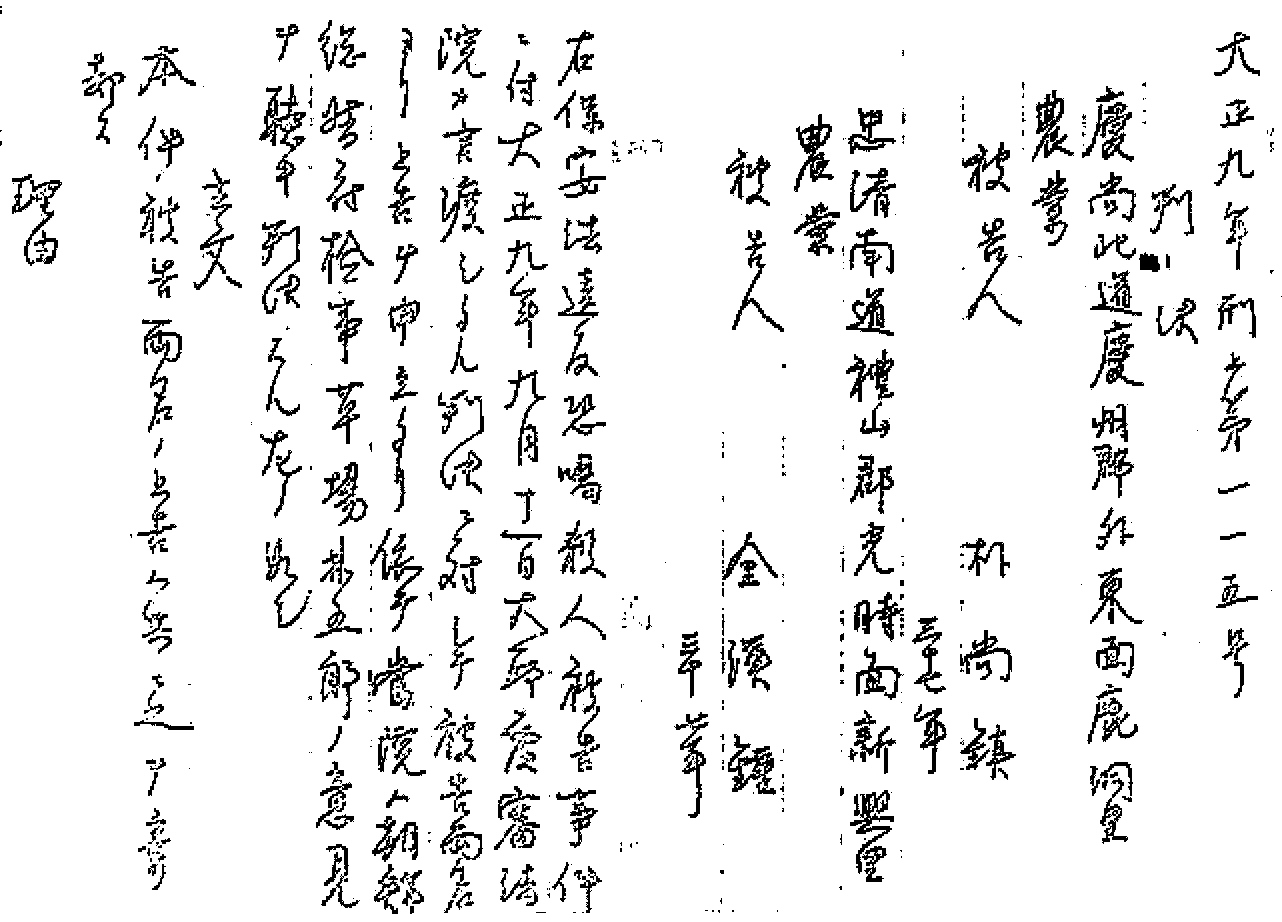 大正九年刑上第一一五号
判決
慶尚北道慶州郡外東面鹿洞里
農業
被告人 朴尚鎮
三十七年
忠清南道禮山郡光時面新興里
農業
被告人 金漢鍾
三十八年
右保安法違反恐喝殺人被告事件
ニ付大正九年九月十一日大邱覆審法
院カ言渡シタル判決ニ対シ被告両名
ヨリ上告ヲ申立タリ依テ當院ハ朝鮮
総督府検事草場林五郎ノ意見
ヲ聴キ判決スル左ノ如シ
主文
本件被告両名ノ上告ハ共ニ之ヲ棄
却ス
理由